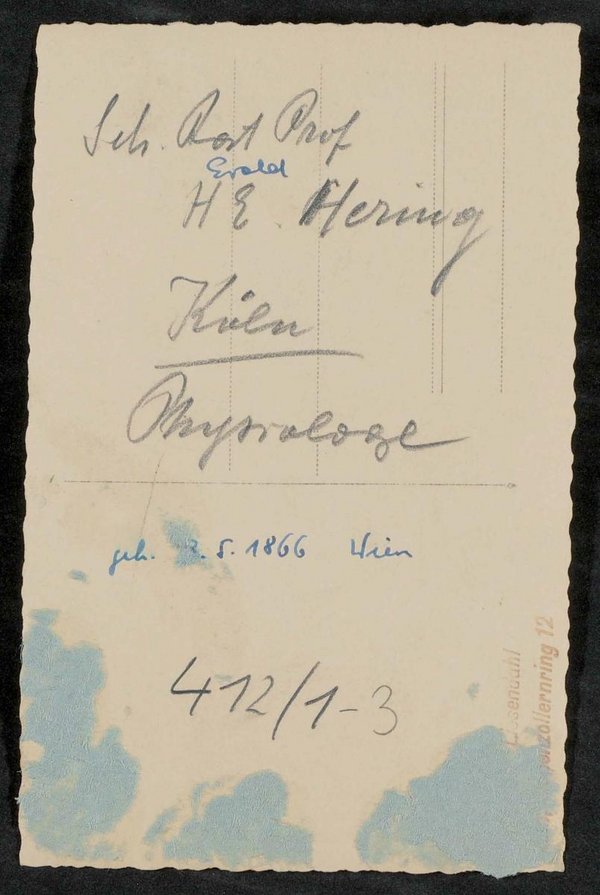 Geh. Rat Prof
Ewald
H E. Hering
Köln
Physiologe
geb. 3. 5. 1866 Wien
412/1-3
enzollernring 12